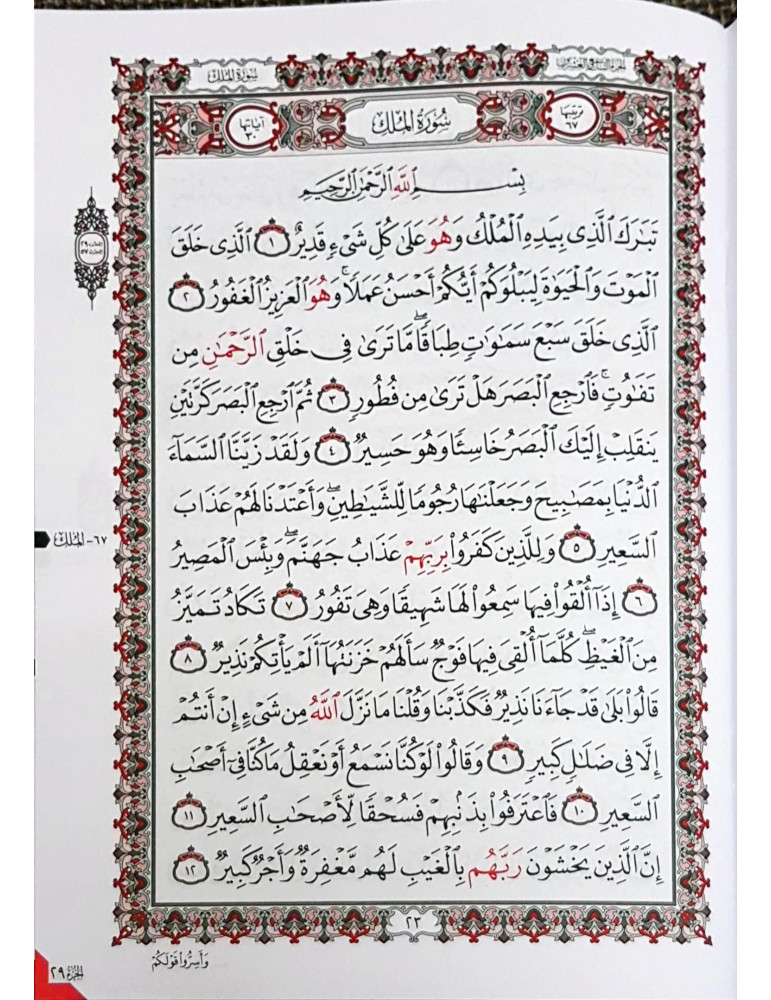 سُورَةُ المُلْكِ
الجزء التاسع والعشرون
آيَاتُهَا ٣٠
سُورَةُ المُلْكِ
تَرتِيبُهَا ٦٧
بِسْمِ اللَّهِ الرَّحْمَٰنِ الرَّحِيمِ
تَبَٰرَكَ ٱلَّذِى بِيَدِهِ ٱلْمُلْكُ وَهُوَ عَلَىٰ كُلِّ شَىْءٍ قَدِيرٌ ١ ٱلَّذِى خَلَقَ
ٱلْمَوْتَ وَٱلْحَيَوٰةَ لِيَبْلُوَكُمْ أَيُّكُمْ أَحْسَنُ عَمَلًا ۚ وَهُوَ ٱلْعَزِيزُ ٱلْغَفُورُ ٢
ٱلَّذِى خَلَقَ سَبْعَ سَمَٰوَٰتٍ طِبَاقًا ۖ مَّا تَرَىٰ فِى خَلْقِ ٱلرَّحْمَٰنِ مِن
تَفَٰوُتٍ ۚ فَٱرْجِعِ ٱلْبَصَرَ هَلْ تَرَىٰ مِن فُطُورٍ ٣ ثُمَّ ٱرْجِعِ ٱلْبَصَرَ كَرَّتَيْنِ
يَنقَلِبْ إِلَيْكَ ٱلْبَصَرُ خَاسِئًا وَهُوَ حَسِيرٌ ٤ وَلَقَدْ زَيَّنَّا ٱلسَّمَآءَ
ٱلدُّنْيَا بِمَصَٰبِيحَ وَجَعَلْنَٰهَا رُجُومًا لِّلشَّيَٰطِينِ ۖ وَأَعْتَدْنَا لَهُمْ عَذَابَ
ٱلسَّعِيرِ ٥ وَلِلَّذِينَ كَفَرُوا۟ بِرَبِّهِمْ عَذَابُ جَهَنَّمَ ۖ وَبِئْسَ ٱلْمَصِيرُ
٦ إِذَآ أُلْقُوا۟ فِيهَا سَمِعُوا۟ لَهَا شَهِيقًا وَهِىَ تَفُورُ ٧ تَكَادُ تَمَيَّزُ
مِنَ ٱلْغَيْظِ ۖ كُلَّمَآ أُلْقِىَ فِيهَا فَوْجٌ سَأَلَهُمْ خَزَنَتُهَآ أَلَمْ يَأْتِكُمْ نَذِيرٌ ٨
قَالُوا۟ بَلَىٰ قَدْ جَآءَنَا نَذِيرٌ فَكَذَّبْنَا وَقُلْنَا مَا نَزَّلَ ٱللَّهُ مِن شَىْءٍ إِنْ أَنتُمْ
إِلَّا فِى ضَلَٰلٍ كَبِيرٍ ٩ وَقَالُوا۟ لَوْ كُنَّا نَسْمَعُ أَوْ نَعْقِلُ مَا كُنَّا فِىٓ أَصْحَٰبِ
ٱلسَّعِيرِ ١٠ فَٱعْتَرَفُوا۟ بِذَنۢبِهِمْ فَسُحْقًا لِّأَصْحَٰبِ ٱلسَّعِيرِ ١١
إِنَّ ٱلَّذِينَ يَخْشَوْنَ رَبَّهُم بِٱلْغَيْبِ لَهُم مَّغْفِرَةٌ وَأَجْرٌ كَبِيرٌ ١٢
٦٧- المُلْكِ
٢٣
وَأَسِرُّوا۟ قَوْلَكُمْ
الجزء ٢٩